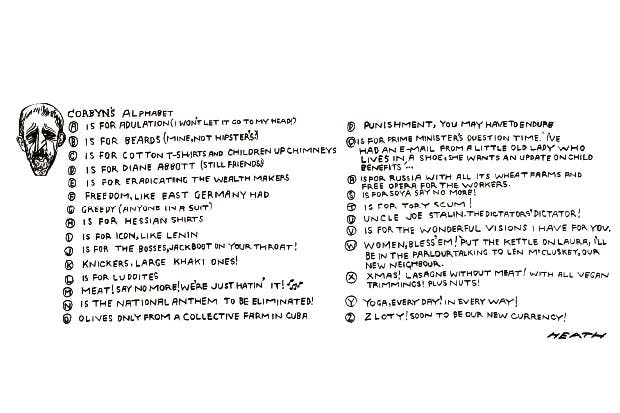 CORBYN'S ALPHABET
A IS FOR ADULATION (I WON'T LET IT GO TO MY HEAD!)
B IS FOR BEARDS (MINE, NOT HIPSTER'S!)
C IS FOR COTTON T-SHIRTS AND CHILDREN UP CHIMNEYS
D IS FOR DIANE ABBOTT (STILL FRIENDS)
E IS FOR ERADICATING THE WEALTH MAKERS
F FREEDOM, LIKE EAST GERMANY HAD
G GREEDY (ANYONE IN A SUIT)
H IS FOR HESSIAN SHIRTS
I IS FOR ICON, LIKE LENIN
J IS FOR THE BOSSES, JACKBOOT ON YOUR THROAT!
K KNICKERS, LARGE KHAKI ONES!
L IS FOR LUDDITES
M MEAT! SAY NO MORE! WE'RE JUST HATIN' IT!
N IS THE NATIONAL ANTHEM TO BE ELIMINATED!
O OLIVES ONLY FROM A COLLECTIVE FARM IN CUBA
P PUNISHMENT, YOU MAY HAVE TO ENDURE
Q IS FOR PRIME MINISTER'S QUESTION TIME. 'I'VE
HAD AN E-MAIL FROM A LITTLE OLD LADY WHO
LIVES IN A SHOE, SHE WANTS AN UPDATE ON CHILD
BENEFITS'...
R IS FOR RUSSIA WITH ALL ITS WHEAT FARMS AND
FREE OPERA FOR THE WORKERS.
S IS FOR SOYA SAY NO MORE!
T IS FOR TORY SCUM!
U UNCLE JOE STALIN. THE DICTATORS' DICTATOR!
V IS FOR THE WONDERFUL VISIONS I HAVE FOR YOU.
W WOMEN, BLESS 'EM! PUT THE KETTLE ON LAURA, I'LL
BE IN THE PARLOUR TALKING TO LEN McCLUSKEY, OUR
NEW NEIGHBOUR.
X XMAS! LASAGNE WITHOUT MEAT! WITH ALL VEGAN
TRIMMINGS! PLUS NUTS!
Y YOGA, EVERY DAY! IN EVERY WAY!
Z ZLOTY! SOON TO BE OUR NEW CURRENCY!
HEATH